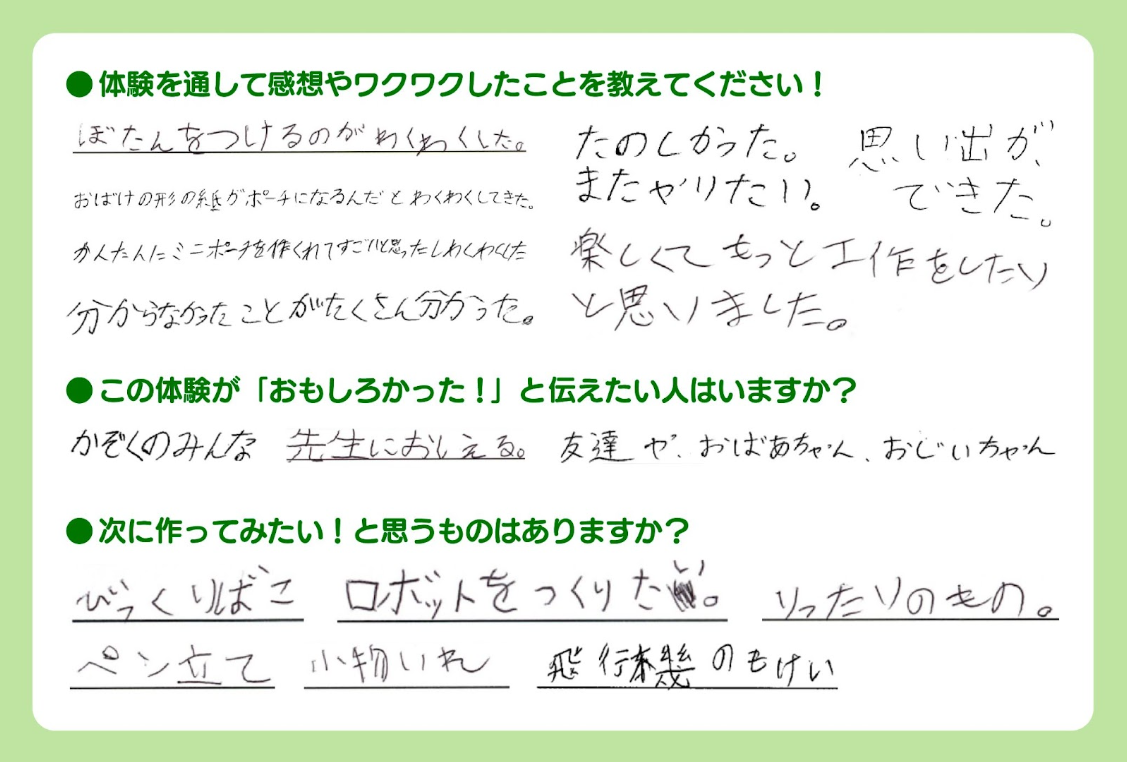 ●体験を通して感想やワクワクしたことを教えてください！
ぼたんをつけるのがわくわくした。
おばけの形の紙がポーチになるんだとわくわくしてきた。
かんたんにミニポーチを作くれてすごいと思ったしわくわくした
分からなかったことがたくさん分かった。
たのしかった。
またやりたい。
思い出が、
できた。
楽しくてもっと工作をしたい
と思いました。
●この体験が「おもしろかった！」と伝えたい人はいますか？
かぞくのみんな 先生におしえる。 友達や、おばあちゃん、おじいちゃん
●次に作ってみたい！と思うものはありますか？
びっくりばこ ロボットをつくりたい。 りったいのもの。
ペン立て 小物いれ 飛行機のもけい